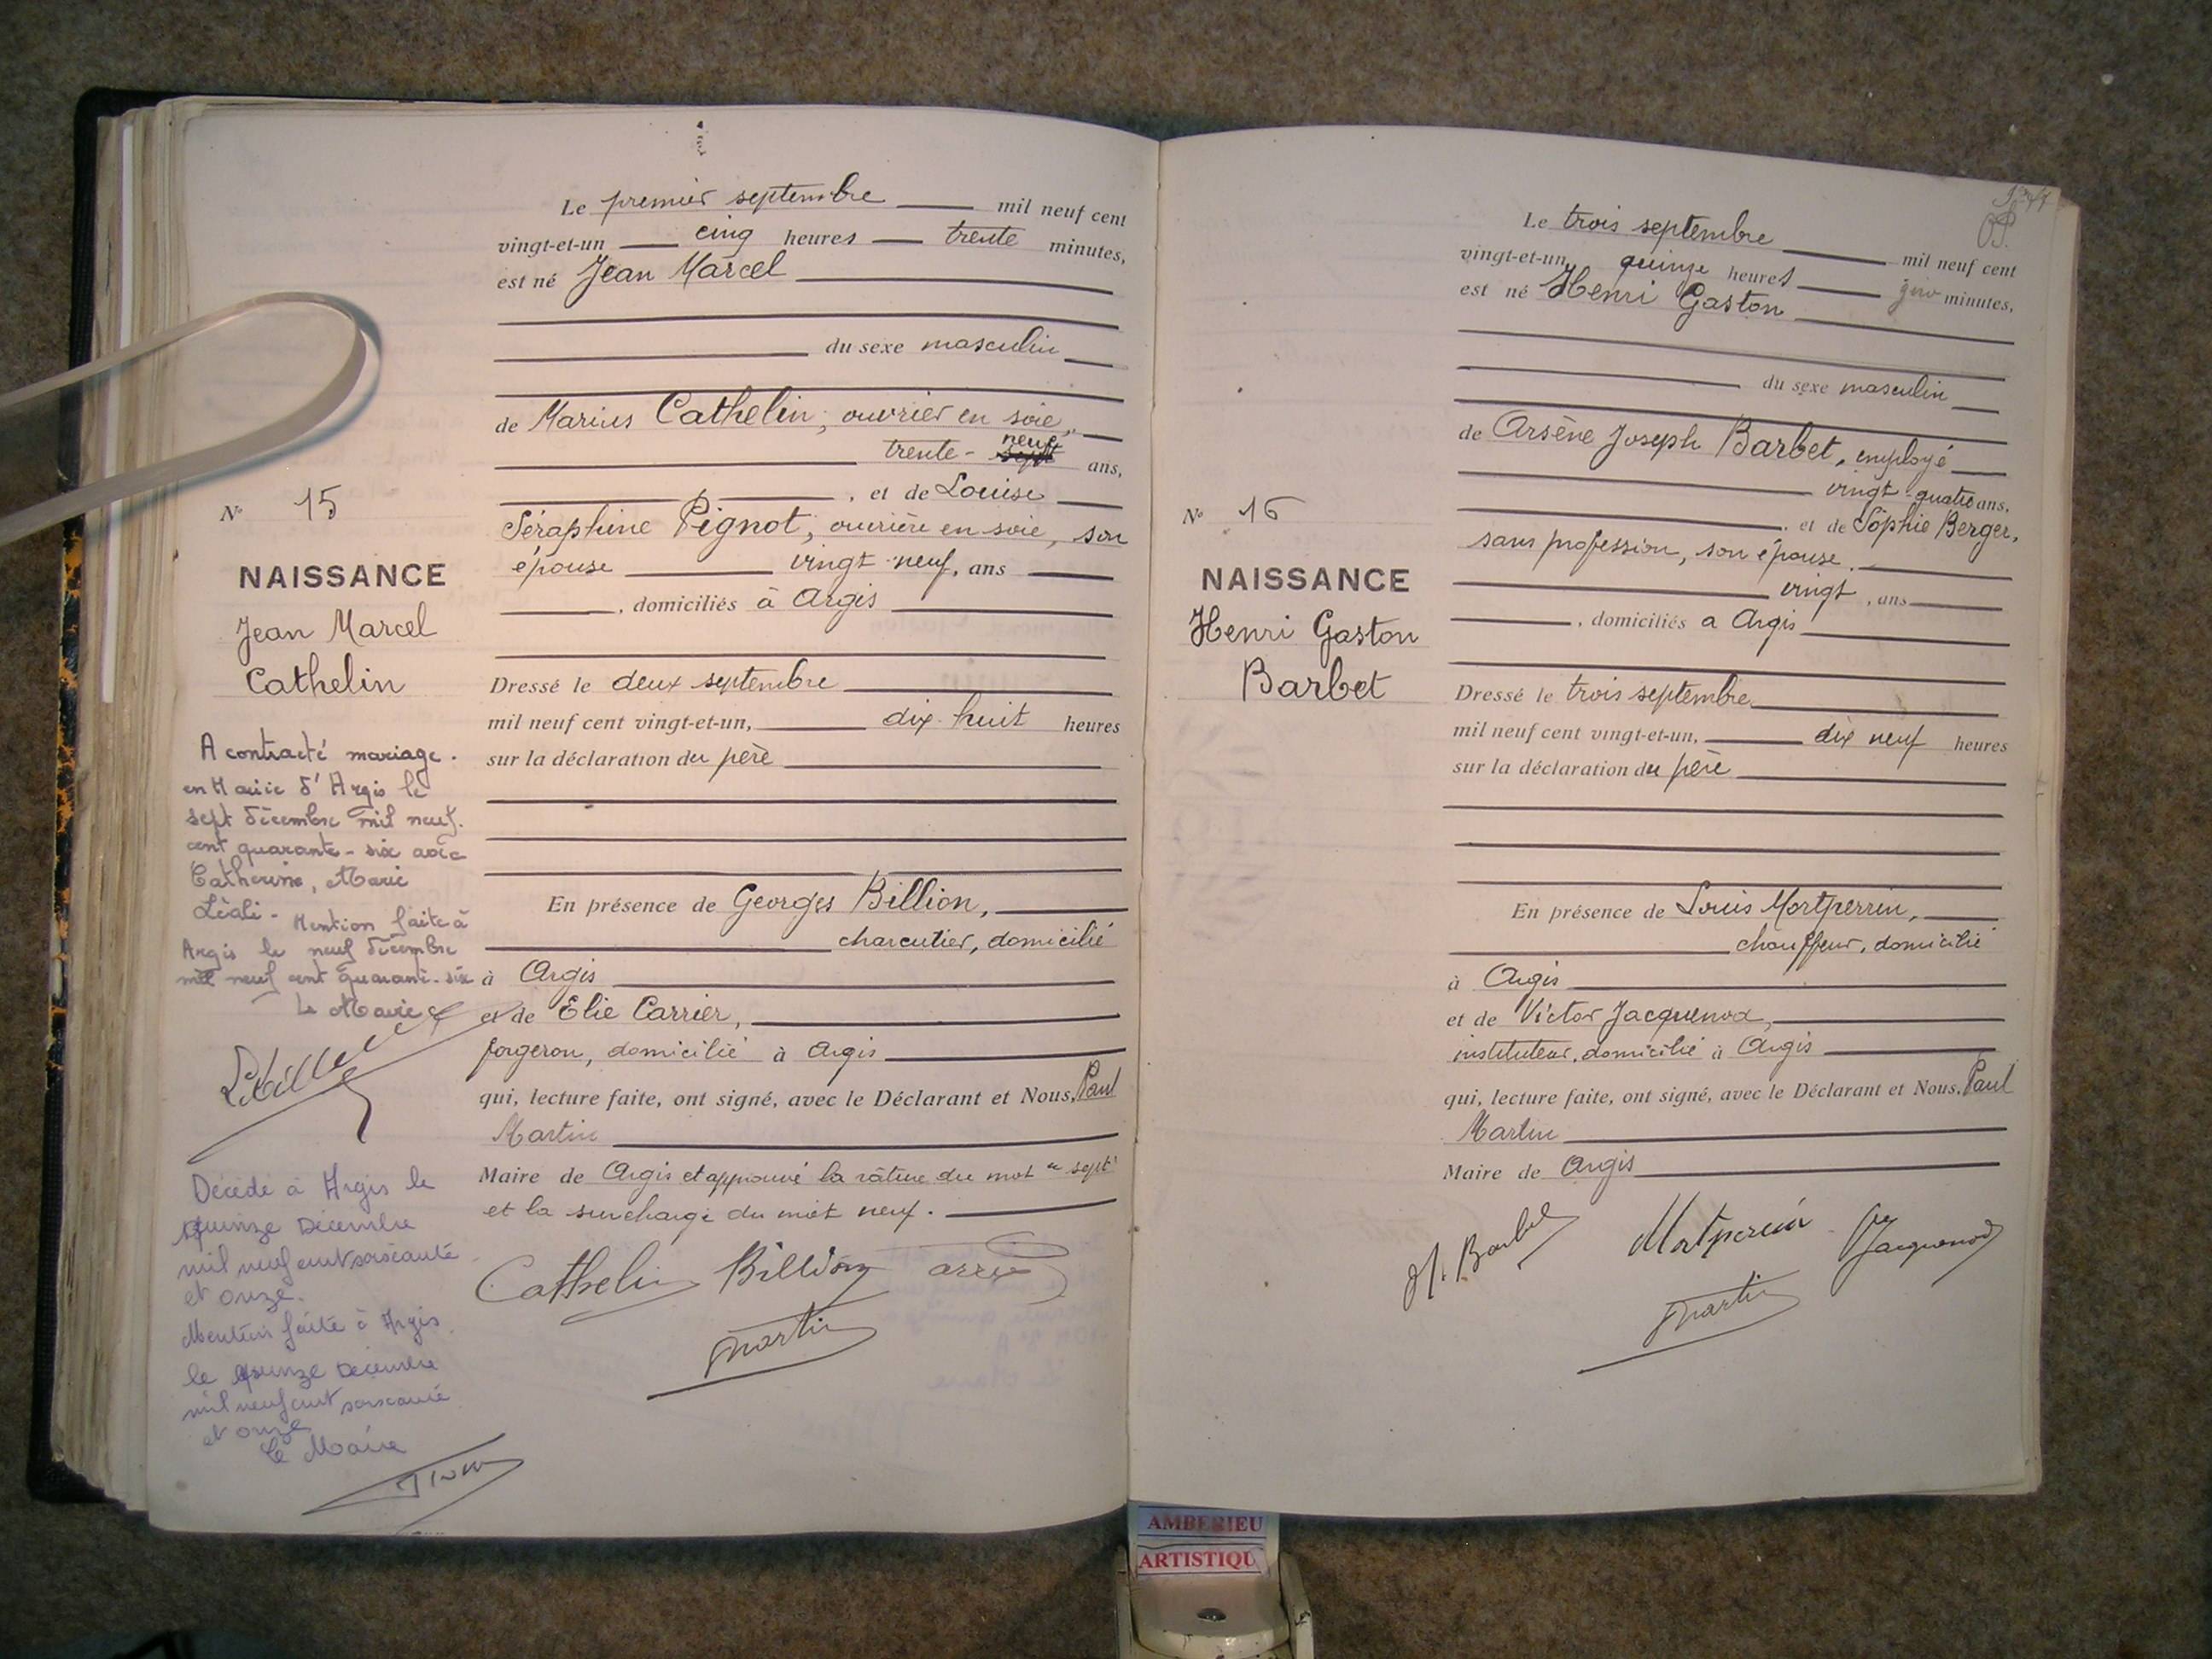 Le premier septembre mil neuf cent
vingt-et-un cinq heures trente minutes,
est né Jean Marcel
du sexe masculin
de Marius Cathelin, ouvrier en soie,
trente-sept neuf ans,
, et de Louise
Séraphine Pignot, ouvrière en soie, son
épouse vingt neuf, ans
, domiciliés à Argis
Dressé le deux septembre
mil neuf cent vingt-et-un, dix-huit heures
sur la déclaration du père
En présence de Georges Billion,
charcutier, domicilié
à Argis
et de Elie Carrier,
forgeron, domicilié à Argis
qui, lecture faite, ont signé, avec le Déclarant et Nous, Paul
Martin
Maire de Argis et approuvé la râture du mot "sept"
et la surcharge du mot neuf.
Cathelin Billion
Martin
N° 15
NAISSANCE
Jean Marcel
Cathelin
A contracté mariage
en Mairie d'Argis le
sept décembre mil neuf
cent quarante-six avec
Catherine, Marie
Léali - Mention faite à
Argis le neuf décembre
mil neuf cent quarante-six
Le Maire
Décédé à Argis le
quinze Décembre
mil neuf cent soixante
et onze.
Mention faite à Argis
le quinze Décembre
mil neuf cent soixante
et onze
Le Maire
Le trois septembre mil neuf cent
vingt-et-un, quinze heures zéro minutes,
est né Henri Gaston
du sexe masculin
de Arsène Joseph Barbet, employé
vingt-quatre ans,
, et de Sophie Berger,
sans profession, son épouse.
vingt, ans
, domiciliés a Argis
Dressé le trois septembre
mil neuf cent vingt-et-un, dix neuf heures
sur la déclaration du père
En présence de Louis Mortperrin,
chauffeur, domicilié
à Argis
et de Victor Jacquenod,
instituteur, domicilié à Argis
qui, lecture faite, ont signé, avec le Déclarant et Nous, Paul
Martin
Maire de Argis
Barbet Mortperrin Jacquenod
Martin
N° 16
NAISSANCE
Henri Gaston
Barbet
AMBERIEU
ARTISTIQU